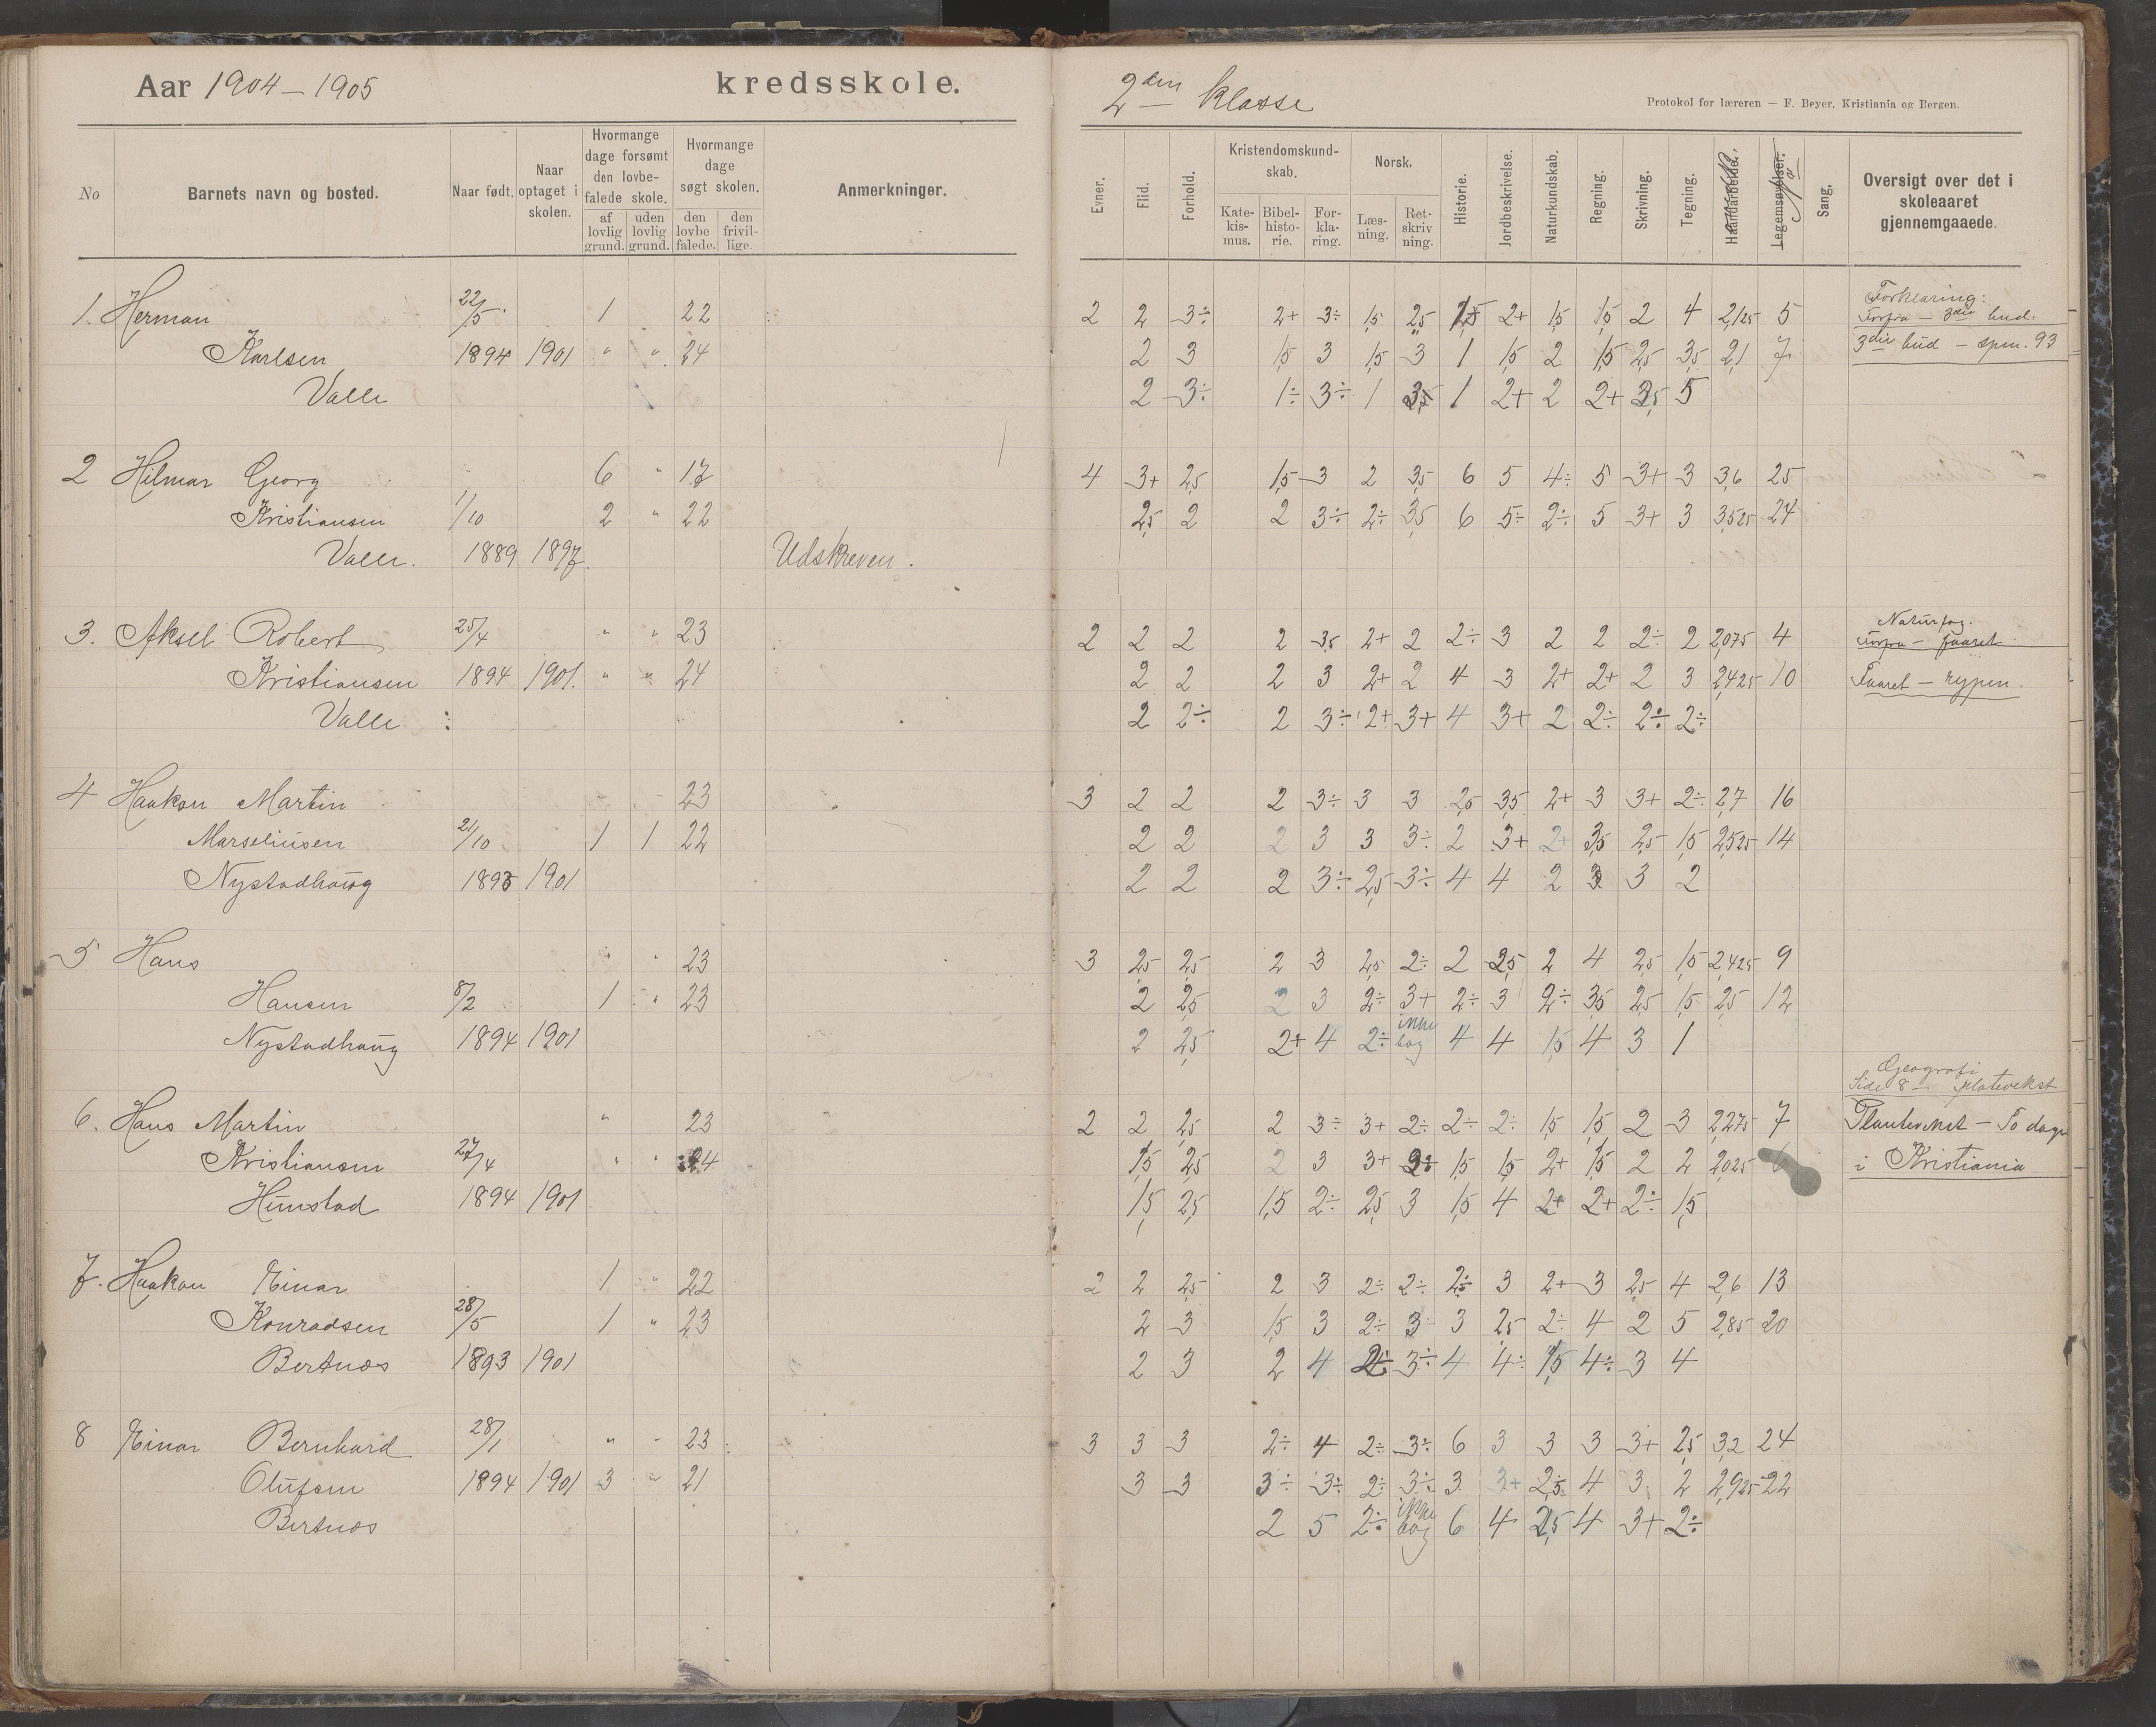 Aar 1904 – 1905 kredsskole.
2den klasse
Protokol for læreren — F. Beyer, Kristiania og Bergen.
No Barnets navn og bosted. Naar født. Naar optaget i skolen. Hvormange dage forsømt den lovbefalede skole. af lovlig grund. uden lovlig grund. Hvormange dage søgt skolen. den lovbefalede. den frivillige. Anmerkninger.
Evner. Flid. Forhold. Kristendomskundskab. Katekismus. Bibelhistorie. Forklaring. Norsk. Læsning. Retskrivning. Historie. Jordbeskrivelse. Naturkundskab. Regning. Skrivning. Tegning. Haandarbeide. Legemsøvelser. Sang. Oversigt over det i skoleaaret gjennemgaaede.
1. Herman 22/5 1 22 2 2 3÷ 2+ 3÷ 1,5 2,5 1,5 2+ 1,5 1,5 2 4 2,125 5 Forklaring: Forfra – 3die bud.
Karlsen 1894 1901 " " 24 2 3 1,5 3 1,5 3 1 1,5 2 1,5 2,5 3,5 2,1 7 3die bud – spm. 93
Valle 2 3÷ 1÷ 3÷ 1 3,5 1 2+ 2 2+ 3,5 5
2 Hilmar Georg 6 " 17 4 3+ 2,5 1,5 3 2 3,5 6 5 4÷ 5 3+ 3 3,6 25
Kristiansen 1/10 2 " 22 2,5 2 2 3÷ 2÷ 3,5 6 5÷ 2÷ 5 3+ 3 3,525 24
Valle. 1889 1897. Udskreven.
3. Aksel Robert 25/4 " " 23 2 2 2 2 3,5 2+ 2 2÷ 3 2 2 2÷ 2 2,075 4 Naturfag. Forfra – faaret
Kristiansen 1894 1901. " " 24 2 2 2 3 2+ 2 4 3 2+ 2+ 2 3 2,425 10 Faaret – rypen.
Valle 2 2÷ 2 3÷ 2+ 3+ 4 3+ 2 2÷ 2÷ 2÷
4 Haakon Martin " " 23 3 2 2 2 3÷ 3 3 2,5 3,5 2+ 3 3+ 2÷ 2,7 16
Marseliusen 21/10 1 1 22 2 2 2 3 3 3÷ 2 3+ 2+ 3,5 2,5 1,5 2,525 14
Nystadhaug 1893 1901 2 2 2 3÷ 2,5 3÷ 4 4 2 3 3 2
5 Hans " " 23 3 2,5 2,5 2 3 2,5 2÷ 2 2,5 2 4 2,5 1,5 2,425 9
Hansen 8/2 1 " 23 2 2,5 2 3 2÷ 3+ 2÷ 3 2÷ 3,5 2,5 1,5 2,5 12
Nystadhaug 1894 1901 2 2,5 2+ 4 2÷ ikke bog 4 4 1,5 4 3 1
Geografi
Side 8 – plantevekst
6. Hans Martin " 23 2 2 2,5 2 3÷ 3+ 2÷ 2÷ 2÷ 1,5 1,5 2 3 2,275 7 Plantevekst – To dage
Kristiansen 27/4 " " 24 1,5 2,5 2 3 3+ 2÷ 1,5 1,5 2+ 1,5 2 2 2,025 6 i Kristiania
Hunstad 1894 1901 1,5 2,5 1,5 2÷ 2,5 3 1,5 4 2+ 2+ 2÷ 1,5
7. Haakon Einar 1 " 22 2 2 2,5 2 3 2÷ 2÷ 2÷ 3 2+ 3 2,5 4 2,6 13
Konradsen 28/5 1 " 23 2 3 1,5 3 2÷ 3 3 2,5 2÷ 4 2 5 2,85 20
Bertnes 1893 1901 2 3 2 4 2÷ 3÷ 4 4÷ 1,5 4÷ 3 4
8 Einar Bernhard 28/1 " " 23 3 3 3 2÷ 4 2÷ 3÷ 6 3 3 3 3+ 2,5 3,2 24
Olufsen 1894 1901 3 " 21 3 3 3÷ 3÷ 2÷ 3÷ 3 3+ 2,5 4 3 2 2,925 22
Bertnes 2 5 2÷ ikke bog 6 4 2,5 4 3+ 2÷